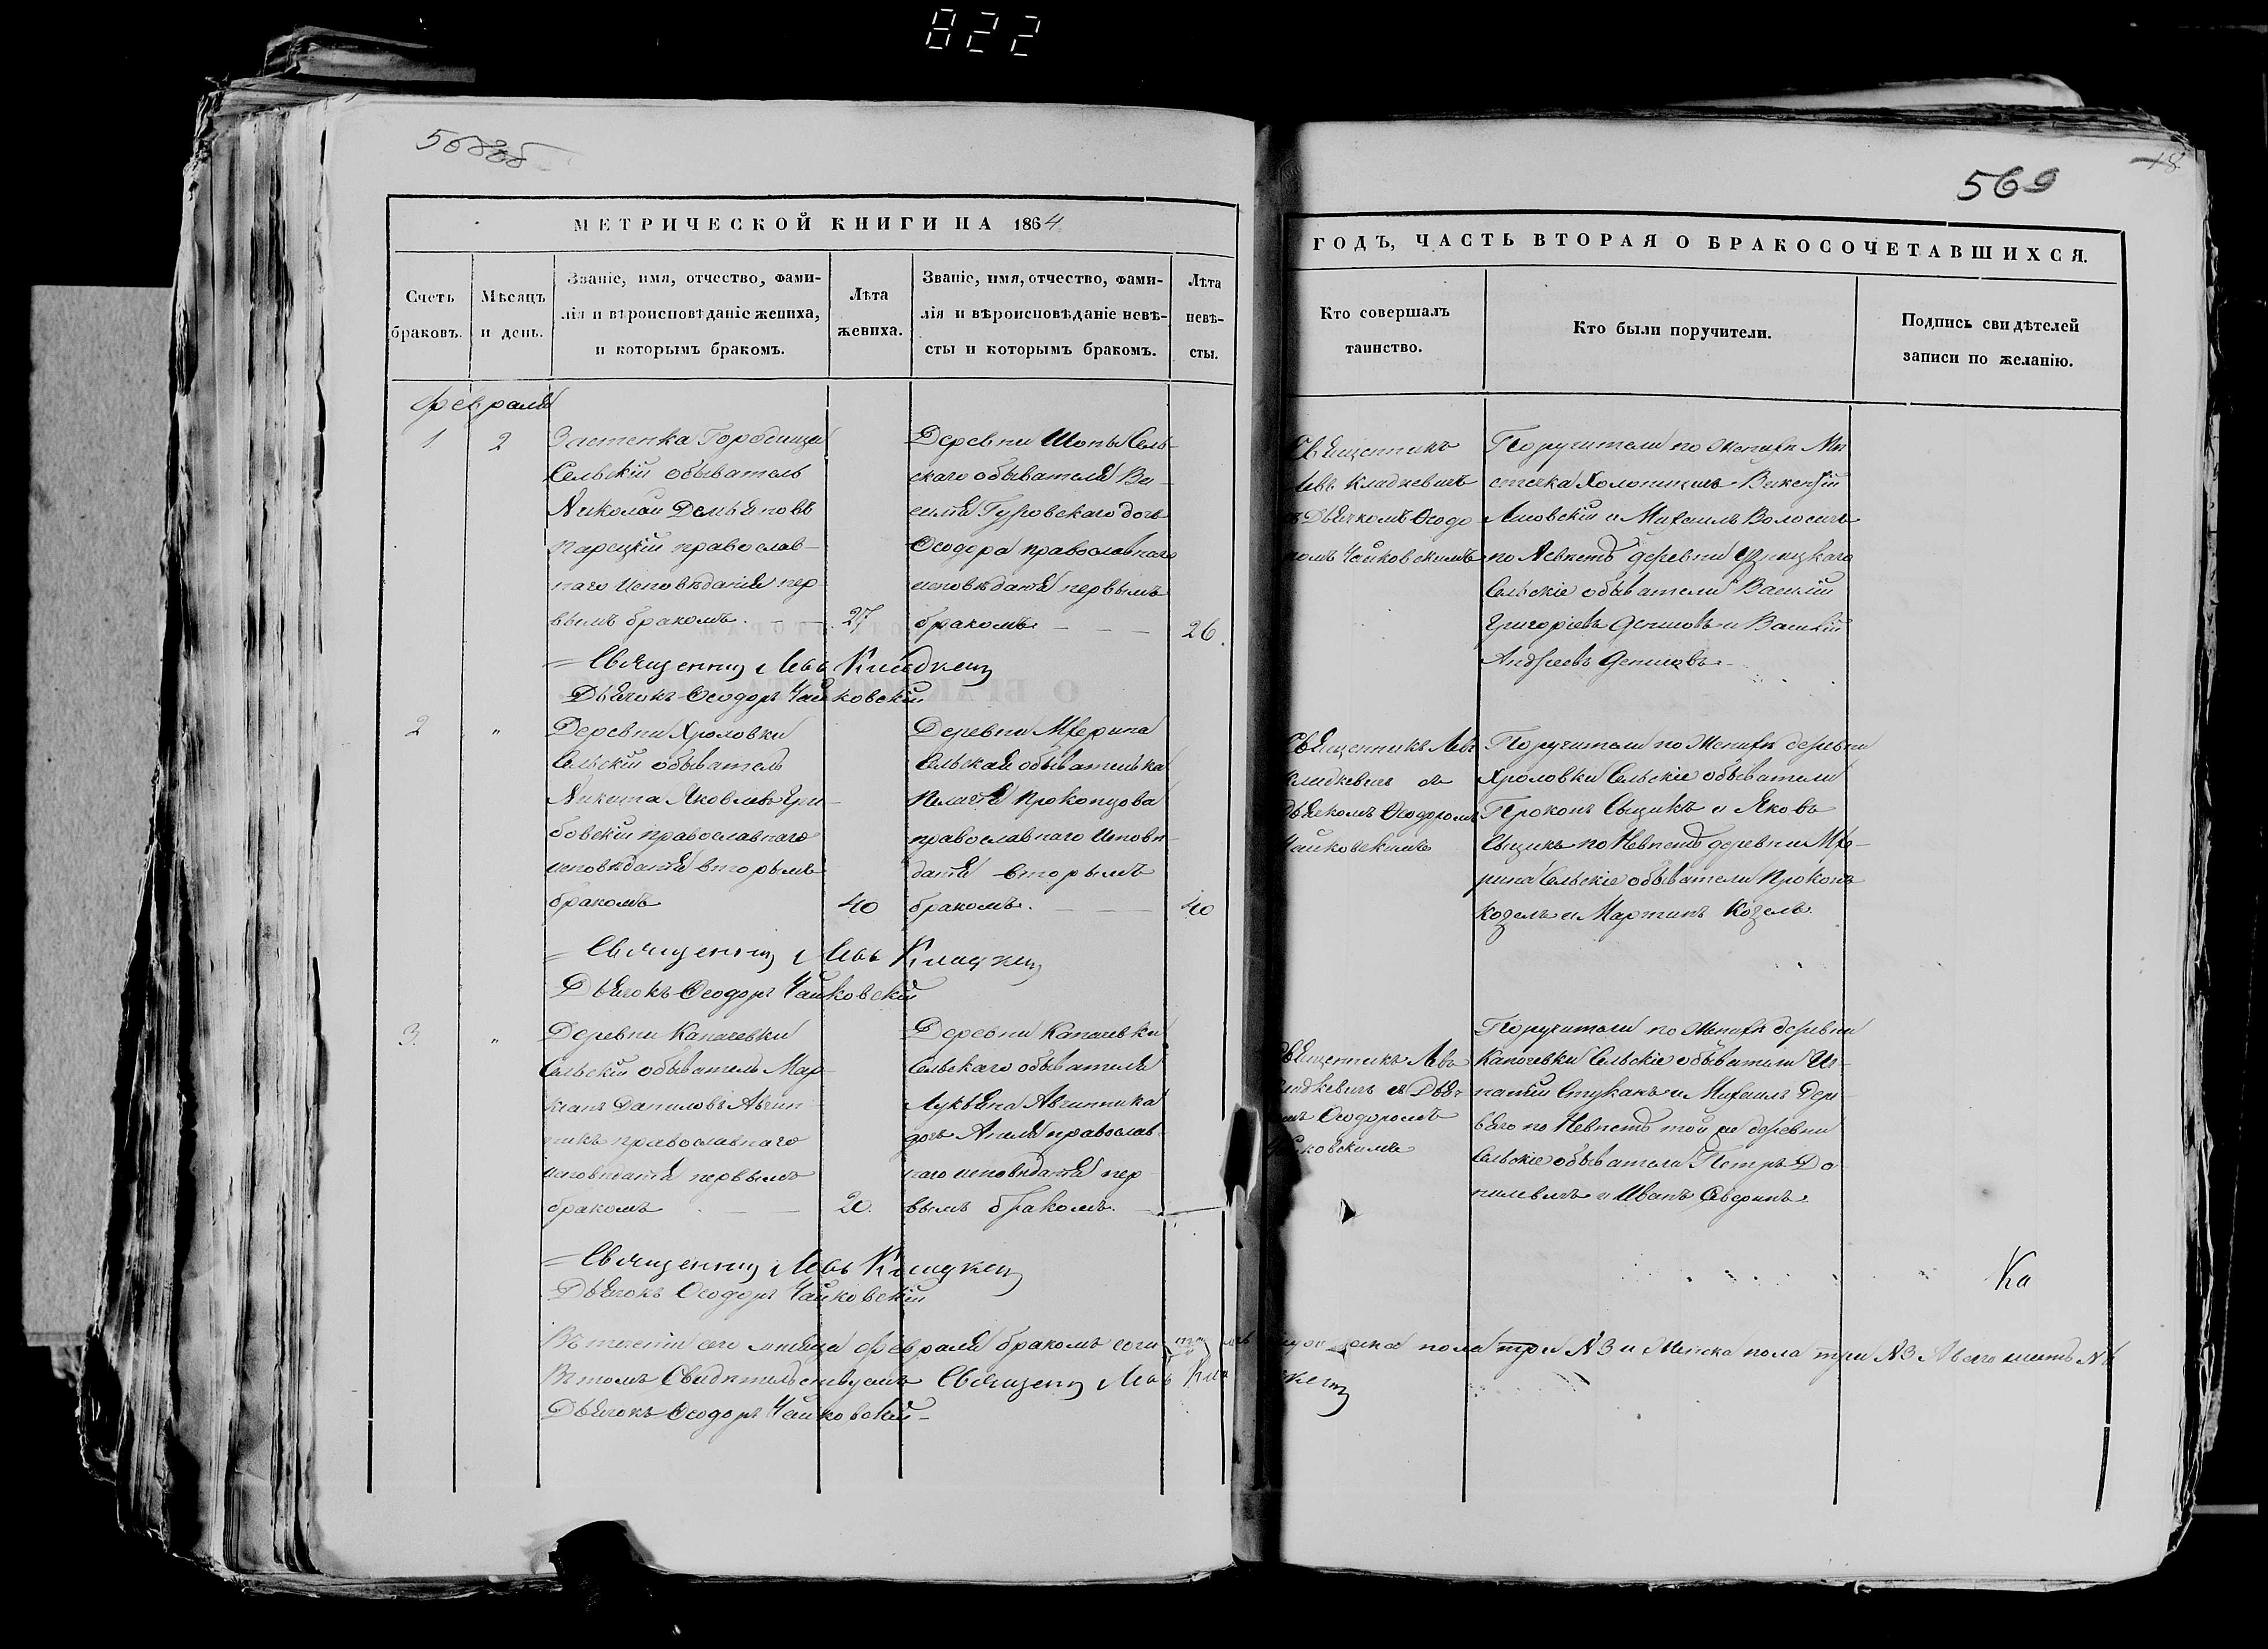 822
568об
18
569
МЕТРИЧЕСКОЙ КНИГИ НА 1864
ГОДЪ, ЧАСТЬ ВТОРАЯ О БРАКОСОЧЕТАВШИХСЯ.
Счетъ
браковъ.
Мѣсяцъ
и день.
Званіе, имя, отчество, фами-
лія и вѣроисповѣданіе жениха,
и которымъ бракомъ.
Лѣта
жениха.
Званіе, имя, отчество, фами-
лія и вѣроисповѣданіе невѣ-
сты и которымъ бракомъ.
Лѣта
невѣ-
сты.
Кто совершалъ
таинство.
Кто были поручители.
Подпись свидѣтелей
записи по желанію.
Февраля
1
2
Застенка Городища
Сельскій обыватель
Николай Демьяновъ
Парецкій православ-
наго исповѣданія пер
вымъ бракомъ.
27
Деревни Шопы Сель-
скаго обывателя Ва-
силія Гуровскаго дочь
Ѳеодора православнаго
исповѣданія первымъ
бракомъ
26.
Священникъ
Левъ Кладкевичъ
съ Дьячкомъ Ѳеодо
ромъ Чайковскимъ
Поручители по женихѣ Мѣ
стечка Холопиничъ Викентій
и Михаилъ Волосичъ
по Невѣстѣ деревни
Сельскіе обыватели Василій
Григорьевъ Денисовъ и Василій
Андреевъ Денисовъ
Священникъ Левъ Кладкевичъ
Дьячокъ Ѳеодоръ Чайковскій
2
"
Деревни Хроловки
Сельскій обыватель
Никита Яковлевъ Гри-
бовскій православнаго
исповѣданія вторымъ
бракомъ
40
Деревни Мхерина
Сельская обывателька
Пелагія Прокопцова
православнаго исповѣ-
данія вторымъ
бракомъ.
40
Священникъ Левъ
Кладкевичъ съ
Дьячкомъ Ѳеодоромъ
Чайковскимъ
Поручители по женихѣ деревни
Хроловки Сельскіе обыватели
Прокопъ Сыцикъ и Яковъ
Сыцикъ по Невѣстѣ деревни Мхе-
рина Сельскіе обыватели Прокопъ
Козелъ и Мартинъ Козелъ.
Священникъ Левъ Кладкевичъ
Дьячокъ Ѳеодоръ Чайковскій
3.
"
Деревни Капачевки
Сельскій обыватель Мар-
кіанъ Даниловъ Авчин
никъ православнаго
исповѣданія первымъ
бракомъ
20.
Деревни Капачевки
Сельскаго обывателя
Лукьяна Авчинника
дочь православ-
наго исповѣданія пер
вымъ бракомъ.
Священникъ Левъ
Кладкевичъ съ Дьяч
комъ Ѳеодоромъ
Чайковскимъ
Поручители по женихѣ деревни
Капачевки Сельскіе обыватели Иг-
натій Стуканъ и Михаилъ
по Невѣстѣ той же деревни
Сельскіе обыватели Петръ Да
нилевичъ и Иванъ Аверинъ
Священникъ Левъ Кладкевичъ
Дьячокъ Ѳеодоръ Чайковскій
Ка
Въ теченіи сего мѣсяца Февраля бракомъ мужеска пола три №3 и Женска пола три №3 А всего шесть №6
Въ томъ Свидѣтельствуемъ Священникъ Левъ Кладкевичъ
Дьячокъ Ѳеодоръ Чайковскій